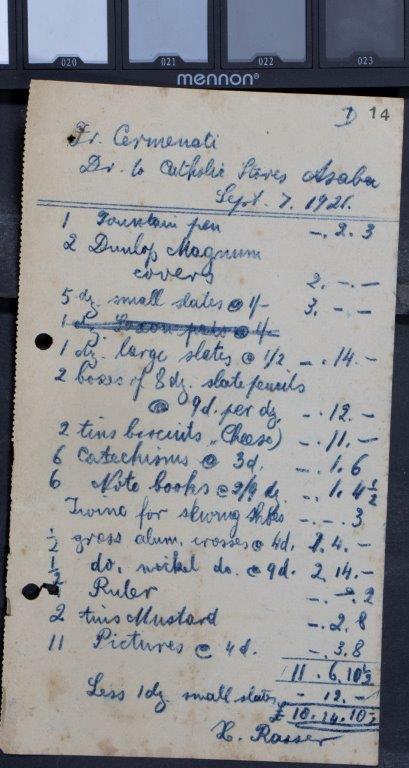 020 021 022 023
mennon®
D 14
Fr. Cermenati
Dr. to Catholic Stores Asaba
Sept. 7. 1921.
1 Fountain pen -. 2. 3
2 Dunlop Magnum
covers 2. -. -
5 dz. small slates @ 1/- 3. - -
1 dz. @ 4/-
1 dz. large slates @ 1/2 -. 14. -
2 boxes of 8 dz. slate pencils
@ 9d. per dz. -. 12. -
2 tins biscuits (Cheese) -. 11. -
6 Catechisms @ 3d. -. 1. 6
6 Note books @ 2/9 dz. -. 1. 4½
Twine for -. -. 3
½ gross alum. crosses @ 4d. 1. 4. -
½ do. nickel do. @ 9d. 2. 14. -
Ruler -. -. 2
2 tins Mustard -. 2. 8
11 Pictures @ 4d. -. 3. 8
11. 6. 10½
Less 1 dz. small slates - 12. -
£ 10. 14. 10½
X. Rasser